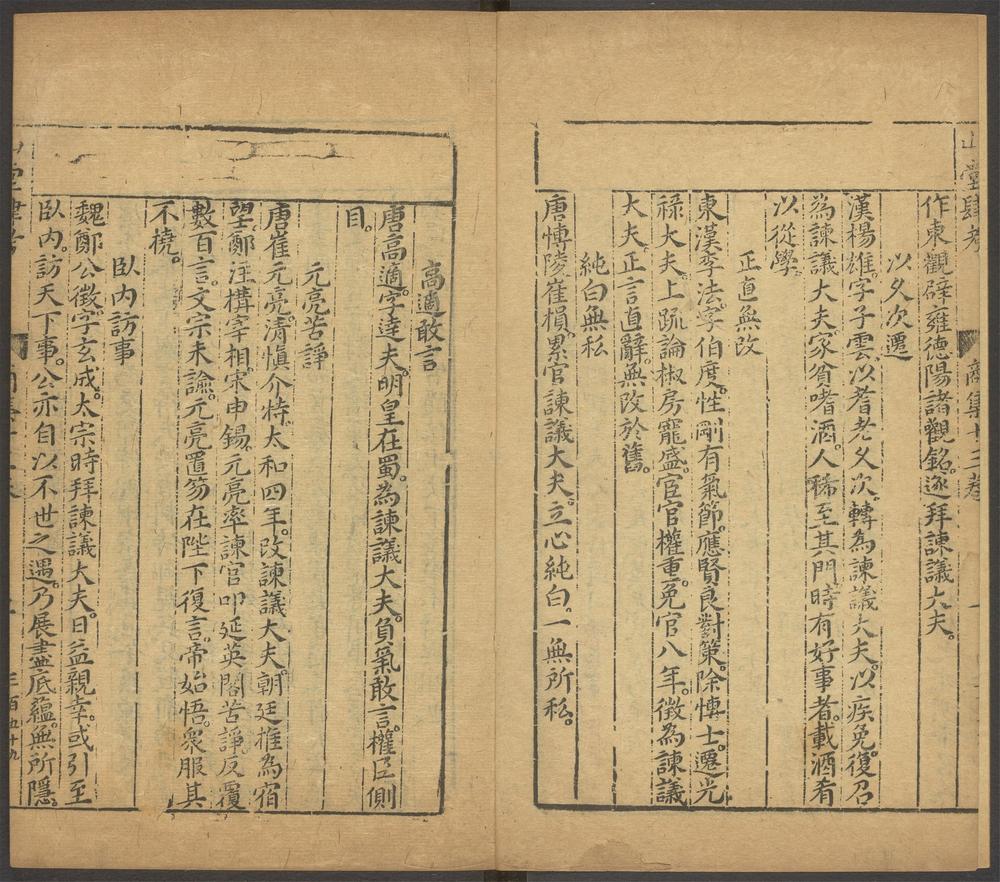 山堂肆考 商集十三卷
作東觀辟雍德陽諸觀銘。遂拜諫議大夫。
以久次遷
漢楊雄。字子雲。以耆老久次。轉為諫議大夫。以疾免復召
為諫議大夫。家貧嗜酒。人稀至其門。時有好事者。載酒肴
以從學。
正直無改
東漢李法。字伯度。性剛有氣節。應賢良對策。除愽士。遷光
祿大夫。上疏論椒房寵盛。宦官權重。免官八年。徵為諫議
大夫。正言直辭。無改於舊。
純白無私
唐愽陵崔損。累官諫議大夫。立心純白。一無所私。
高適敢言
唐高適。字達夫。明皇在蜀。為諫議大夫。負氣敢言。權臣側
目。
元亮苦諍
唐崔元亮。清慎介特。太和四年。改諫議大夫。朝廷推為宿
望。鄭注搆宰相。宋申錫。元亮率諫官叩延英閣苦諍。反覆
數百言。文宗未諭。元亮置笏在陛下復言。帝始悟。衆服其
不橈。
臥內訪事
魏鄭公徵。字玄成。太宗時拜諫議大夫。日益親幸。或引至
臥內。訪天下事。公亦自以不世之遇。乃展盡底蘊。無所隱。
山堂肆考 三百五十九